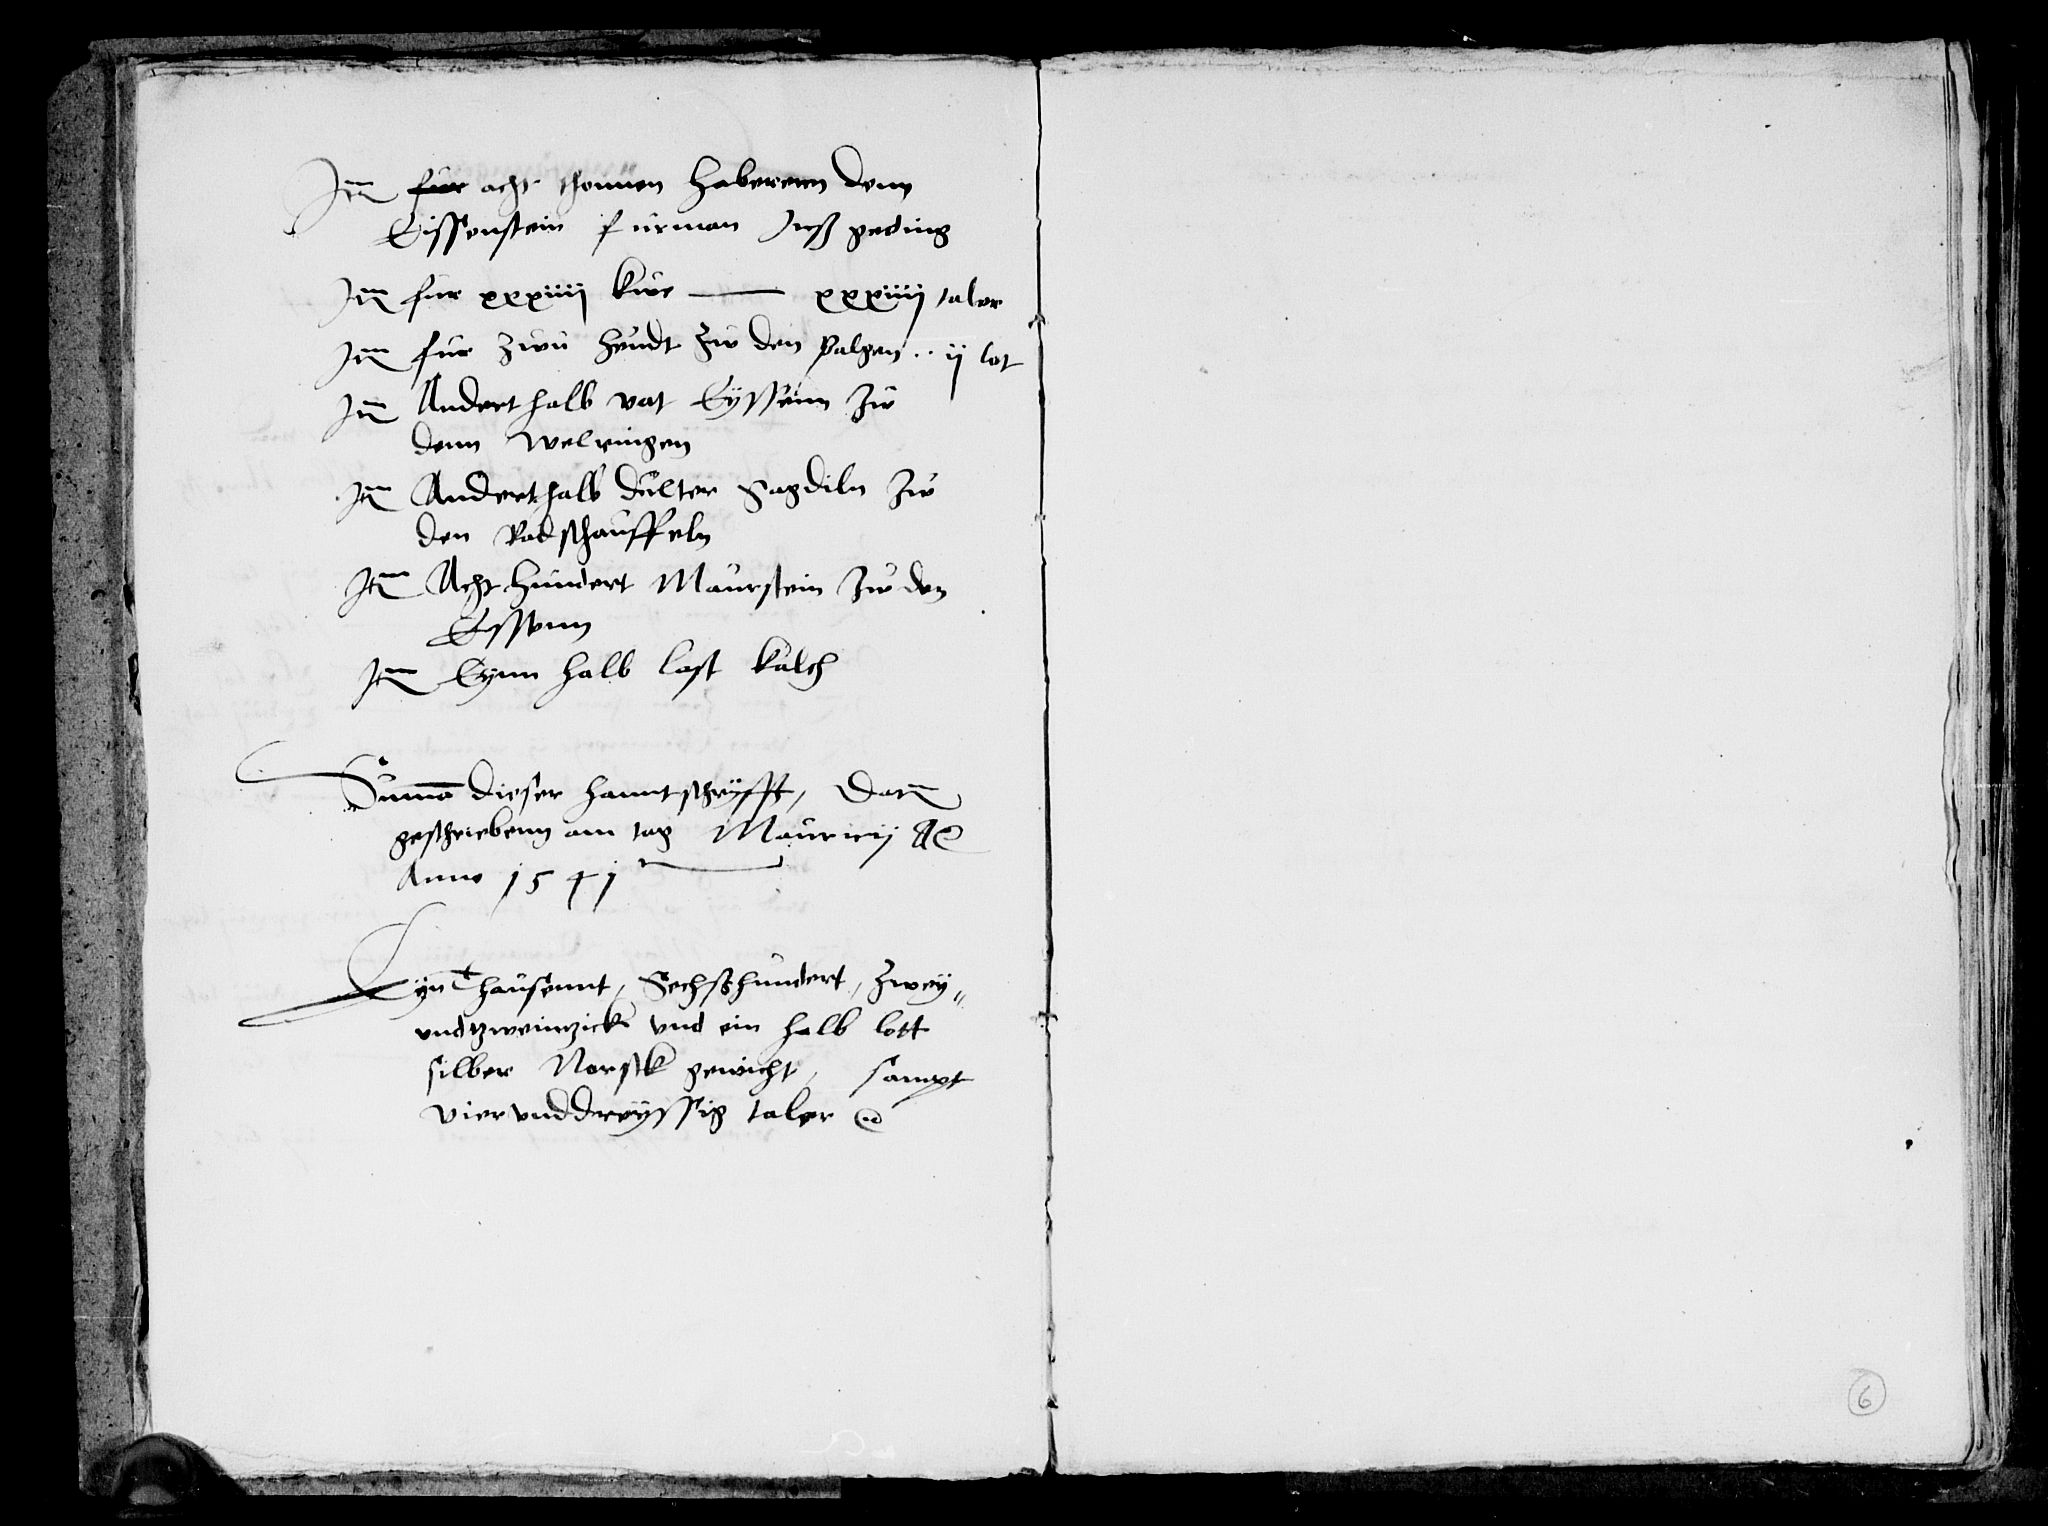 Itm acht thonnen haberenn denn
Eissenstein furman Inß geding
Itm fur xxxiiij kwe — xxxiiij taler
Itm fur zwu heudt zw den palgen .. ij lot
Itm Anderthalb vat Eyssenn zw
denn welringen
Itm Anderthalb dulter Sagdiln zw
den Radschauffeln
Itm Acht hundert Maurstein zw den
Essenn
Itm Eynn halb last kalch
Suma dieser hanntschryfft, Datm
geschriebenn am tag Mauricij
Anno 1541
Eyn Thausennt, Sechßhundert, Zwey„
vndtzweintzick vnd ein halb lott
silber Norsk gewicht, sampt
viervnddreyssig taler
6